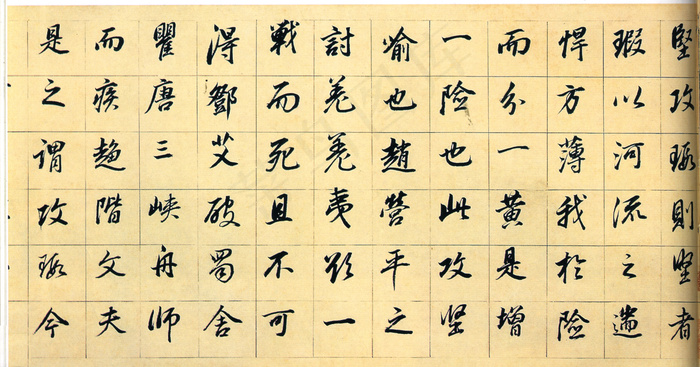 堅攻瑕則堅者
瑕以河流之遄
悍方薄我於險
而分一黄是增
一險也此攻堅
喻也趙營平之
討羌羌夷欲一
戰而死且不可
得鄧艾破蜀舍
瞿唐三峽舟師
而疾趨階文夫
是之謂攻瑕今